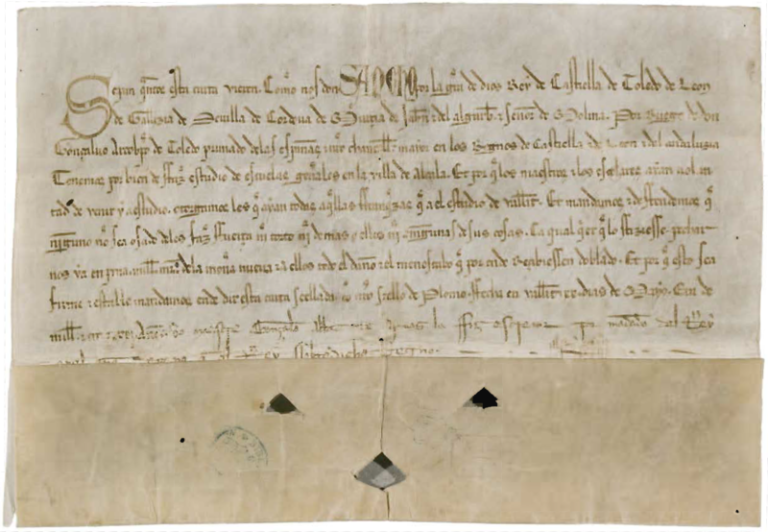 Sepan q̃ntos esta carta vieren Como nos don SANCHO por la gr̃a de dios Rey de Castiella de Toledo de Leon
de Gallizia de Seuilla de Cordoua de Murcia de Jahen r del algarbe r señor de Molina. Por Ruego de don
Gonçaluo Arçobpo de Toledo primado de las espannas r nr̃o chanceller maior en los Regnos de Castiella r de Leon r del andaluzia
Tenemos por bien de fazer estudio de escuelas generales en la villa de alcala. Et por q̃ los maestros r los escolares ayan uolun
tad de venir y a estudio. otorgamos les q̃ ayan todas aq̃llas franquezas q̃ a el estudio de vallit. Et mandamos r deffendemos q̃
ninguno no sea osado delos fazer fuerça ni tuerto ni demas a ellos ni a ninguna de sus cosas. Ca qual q̃er q̃ lo fiziesse pechar
nos ya en pena mill mr̃s de la moneda nueua r a ellos todo el danno r el menoscabo q̃ por ende Reçibiessen doblado. Et por q̃ esto sea
firme r estable mandamos ende dar esta carta seellada con nr̃o seello de Plomo. ffecha en vallit dias de Mayo. Era de
mill maestre Gonçalo la fiz escreuir por mandado del Rey
Rey sobredicho regno